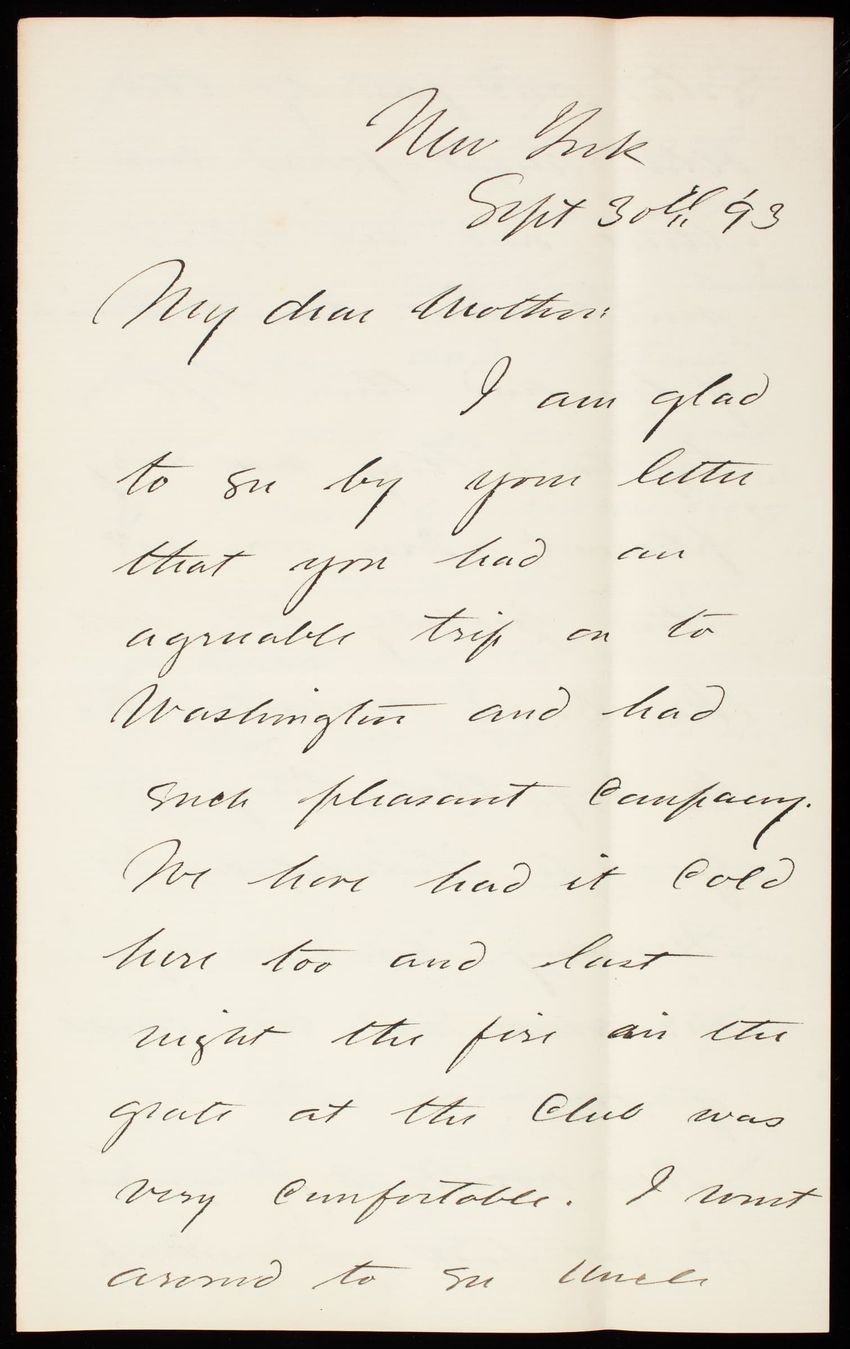 New York
Sept 30th '93
My dear Mother:
I am glad
to see by your letter
that you had an
agreeable trip on to
Washington and had
such pleasant company.
We have had it cold
here too and last
night the fire in the
grate at the Club was
very comfortable. I went
around to see Uncle